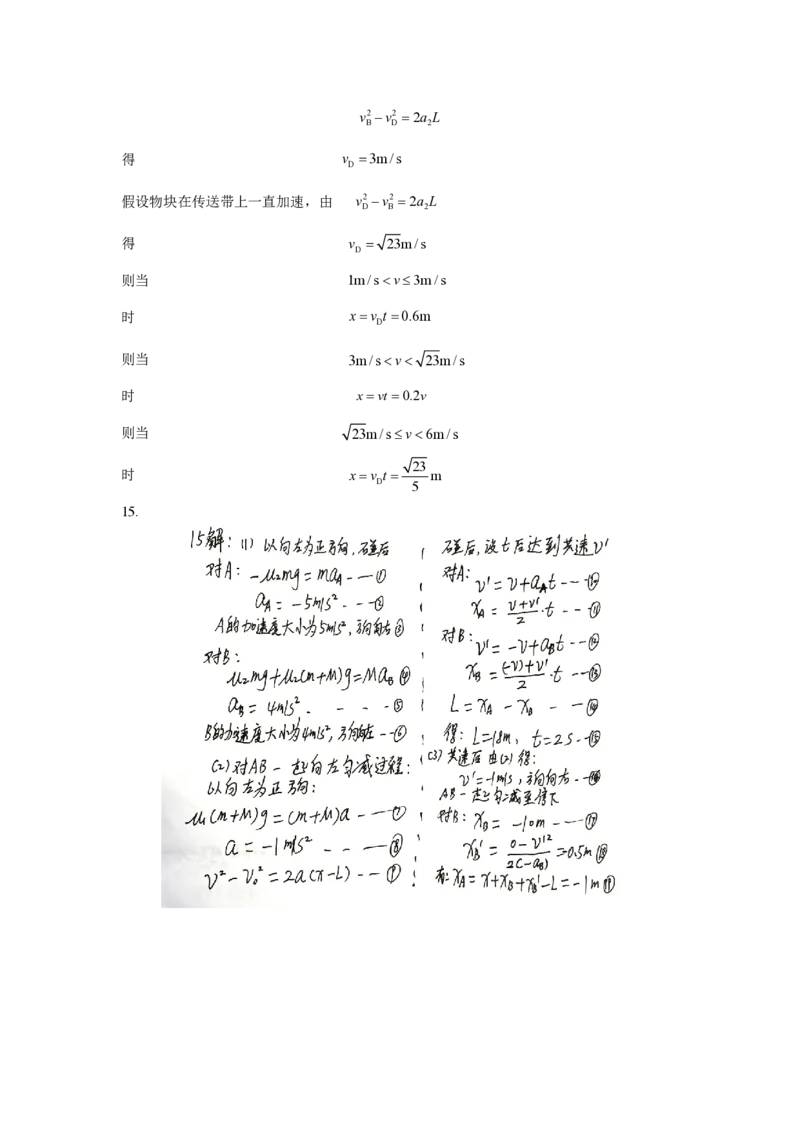 v_B^2 − v_D^2 = 2a_2L
得 v_D = 3m/s
假设物块在传送带上一直加速，由 v_D^2 − v_B^2 = 2a_2L
得 v_D = √23m/s
则当 1m/s < v ≤ 3m/s
时 x = v_Dt = 0.6m
则当 3m/s < v < √23m/s
时 x = vt = 0.2v
则当 √23m/s ≤ v < 6m/s
时 x = v_Dt = √23/5 m
15.
15解：(1) 以向左为正方向，碰后
对A：-μ₂mg = ma_A --- ①
a_A = -5m/s² --- ②
A的加速度大小为5m/s²，方向向右③
对B：
μ₂mg+μ₂(m+M)g=Ma_B ④
a_B = 4m/s². - - - - ⑤
B的加速度大小为4m/s²，方向向左 --⑥
(2)对AB一起向左匀减过程：
以向左为正方向：
μ₁(m+M)g=(m+M)a ---⑦
a = -1m/s² - - --⑧
v²-v₀²=2a(x-L) ---⑨
碰后，设t后达到共速v'
对A：
v'=v+a_At --- ⑩
x_A = (v+v')/2 ·t -- ⑪
对B：
v'=-v+a_Bt --⑫
x_B = ((-v)+v')/2 ·t --⑬
L=x_A-x_B - -⑭
得：L=18m，t=2s--⑮
(3)共速后由(2)得：
v'=-1m/s，方向向右--⑯
AB一起匀减至停下
对B：x_B = -10m ---⑰
x_B' = (0-v'²)/(2(-a_B)) =0.5m ⑱
有：x_A=x+x_B+x_B'-L=-1m⑲